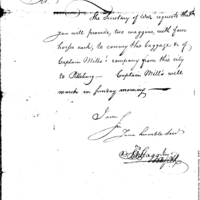 The Secretary of War requests that
you will provide, two waggons, with four
horses each, to convey the baggage &c of
Captain Mills's company from this city
to Pittsburg — Captain Mills will
march on Sunday morning —
I am
Sir
Your humble Serv